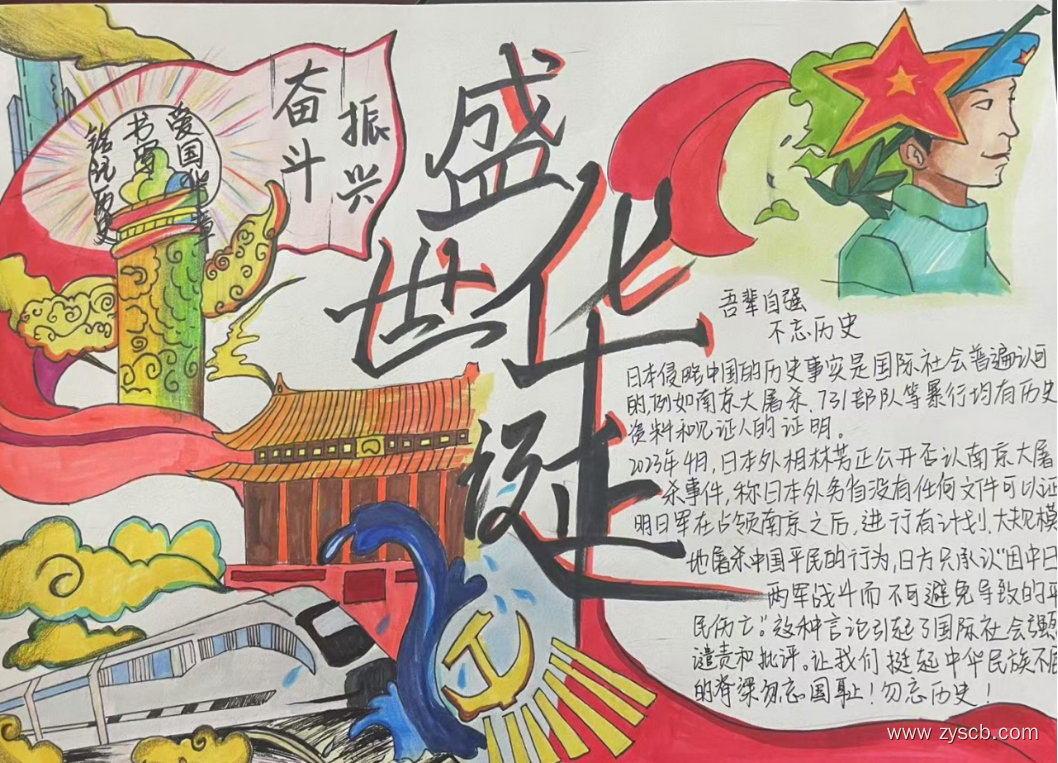 振兴
奋斗
爱国
书写
铭记历史
盛世
华诞
吾辈自强
不忘历史
日本侵略中国的历史事实是国际社会普遍认可
的,例如南京大屠杀、731部队等暴行均有历史
资料和见证人的证明。
2023年4月,日本外相林芳正公开否认南京大屠
杀事件,称日本外务省没有任何文件可以证
明日军在占领南京之后,进行有计划、大规模
地屠杀中国平民的行为,日方只承认“因中日
两军战斗而不可避免导致的平
民伤亡。”这种言论引起了国际社会强烈
谴责和批评。让我们挺起中华民族不屈
的脊梁勿忘国耻!勿忘历史!
www.zyscb.com